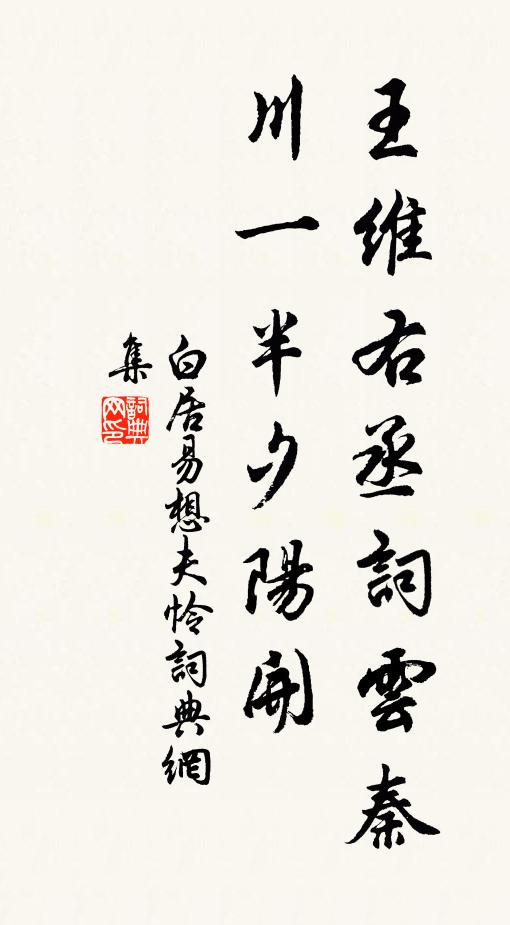 王維右丞詞雲秦
川一半夕陽開
白居易想夫怜詞典網
集
詞典
网印